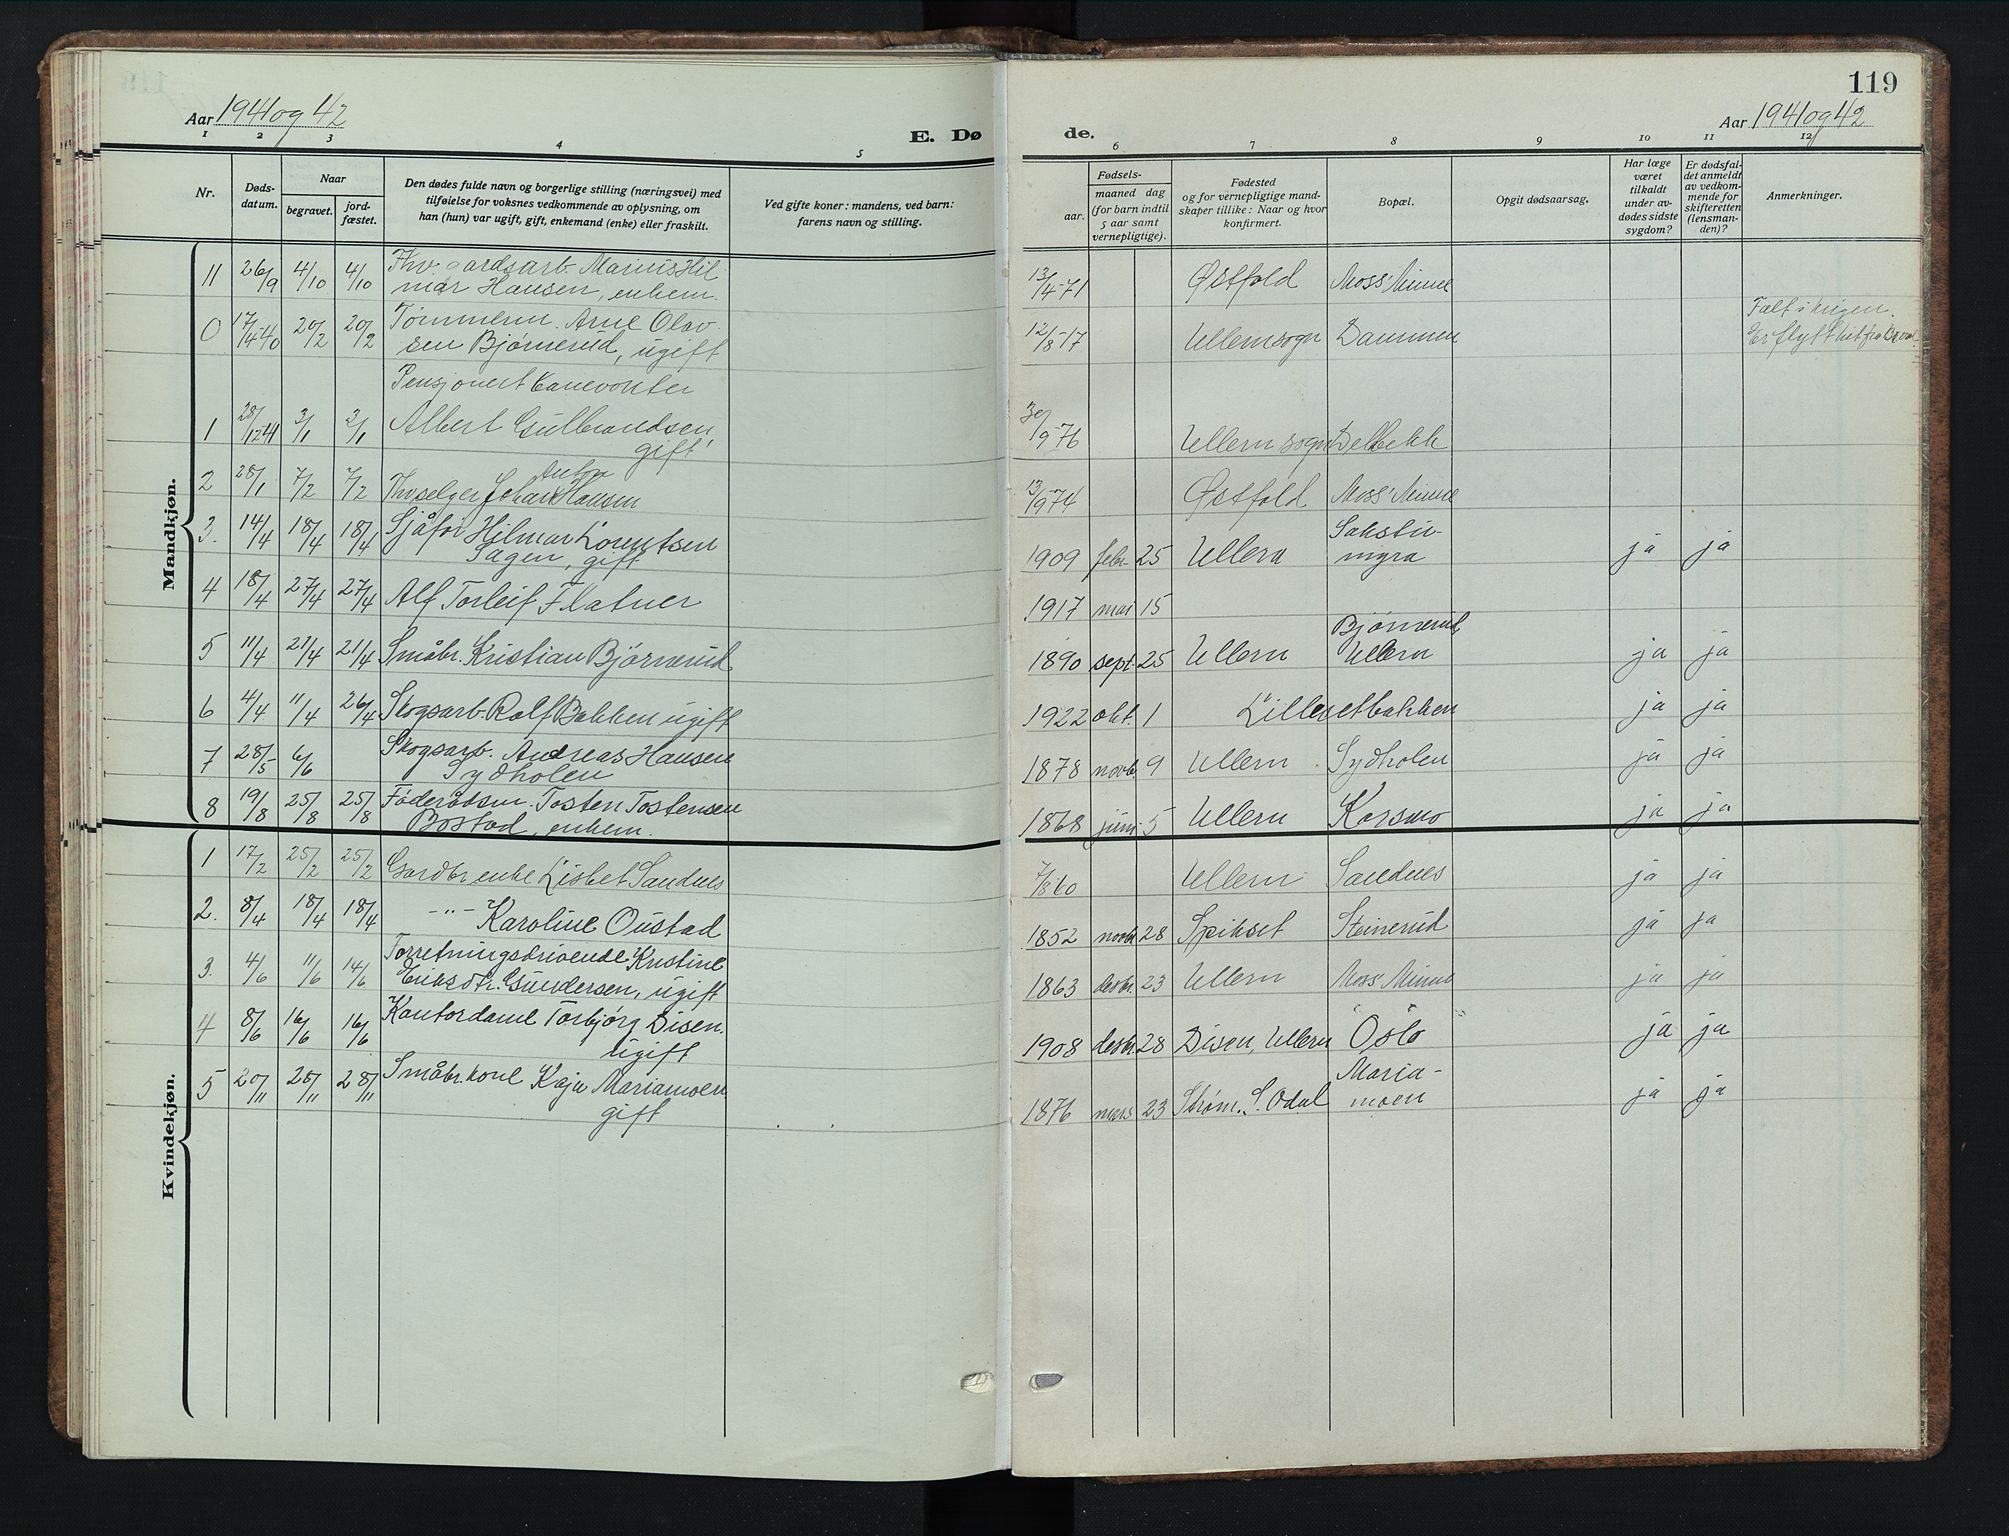 119
Aar 1941 og 42
E. Dø
de.
Aar 1941 og 42
1 2 3 4 5 6 7 8 9 10 11 12
Nr.
Døds-
datum.
Naar
begravet.
jord-
fæstet.
Den dødes fulde navn og borgerlige stilling (næringsvei) med
tilføielse for voksnes vedkommende av oplysning, om
han (hun) var ugift, gift, enkemand (enke) eller fraskilt.
Ved gifte koner: mandens, ved barn:
farens navn og stilling.
Fødsels-
aar.
maaned dag
(for barn indtil
5 aar samt
vernepligtige).
Fødested
og for vernepligtige mand-
skaper tillike: Naar og hvor
konfirmert.
Bopæl.
Opgit dødsaarsag.
Har læge
været
tilkaldt
under av-
dødes sidste
sygdom?
Er dødsfal-
det anmeldt
av vedkom-
mende for
skifteretten
(lensman-
den)?
Anmerkninger.
Mandkjøn.
11 26/9 4/10 4/10 Fhv. gardsarb. Marius Hil
mar Hansen, enkem. 13/4-71 Østfold Moss' Minne
0 17/4-40 20/2 20/2 Tømmerm. Arne Olav
sen Bjørnerud, ugift 12/8-17 Ullern sogn Dammen Falt i krigen.
Er flytt hit fra
Pensjonert banevokter
1 28/12-41 3/1 3/1 Albert Gulbrandsen,
gift 30/9-76 Ullern sogn Delbekk
2 28/1 7/2 7/2 Fhv selger Johan Anton Hansen 13/9-74 Østfold Moss' Minne
3. 14/4 18/4 18/4 Sjåfør Hilmar Lorentsen
Sagen, gift 1909 febr 25 Ullern Sakstu-
myra ja ja
4 18/4 27/4 27/4 Alf Torleif Flatner 1917 mai 15
5 11/4 21/4 21/4 Småbr. Kristian Bjørnerud 1890 sept. 25 Ullern Bjørnerud,
Ullern ja ja
6 4/4 11/4 26/4 Skogsarb. Rolf Bakken ugift 1922 okt. 1 Lillesetbakken ja ja
7 28/5 6/6 Skogsarb. Andreas Hansen
Sydholen 1878 novb. 9 Ullern Sydholen ja ja
8 19/8 25/8 25/8 Føderådsm. Tosten Tostensen
Bostad, enkem. 1868 juni 5 Ullern Korsmo ja ja
Kvindekjøn.
1 17/2 25/2 25/2 Gardbr. enke Lisbet Sandnes 7/8 60 Ullern Sandnes ja ja
2. 8/4 18/4 18/4 -"- Karoline Oustad 1852 novb 28 Spikset Steinerud ja ja
3. 4/6 11/6 14/6 Forretningsdrivende Kristine
Eriksdtr. Gundersen, ugift 1863 desbr. 23 Ullern Moss' Minne ja ja
4 8/6 16/6 16/6 Kontordame Torbjørg Disen.
ugift 1908 desbr. 28 Disen, Ullern Oslo ja ja
5 20/11 28/11 28/11 Småbr. kone Kaja Mariamoen
gift 1876 mars 23 Strøm. S. Odal Maria-
moen ja ja